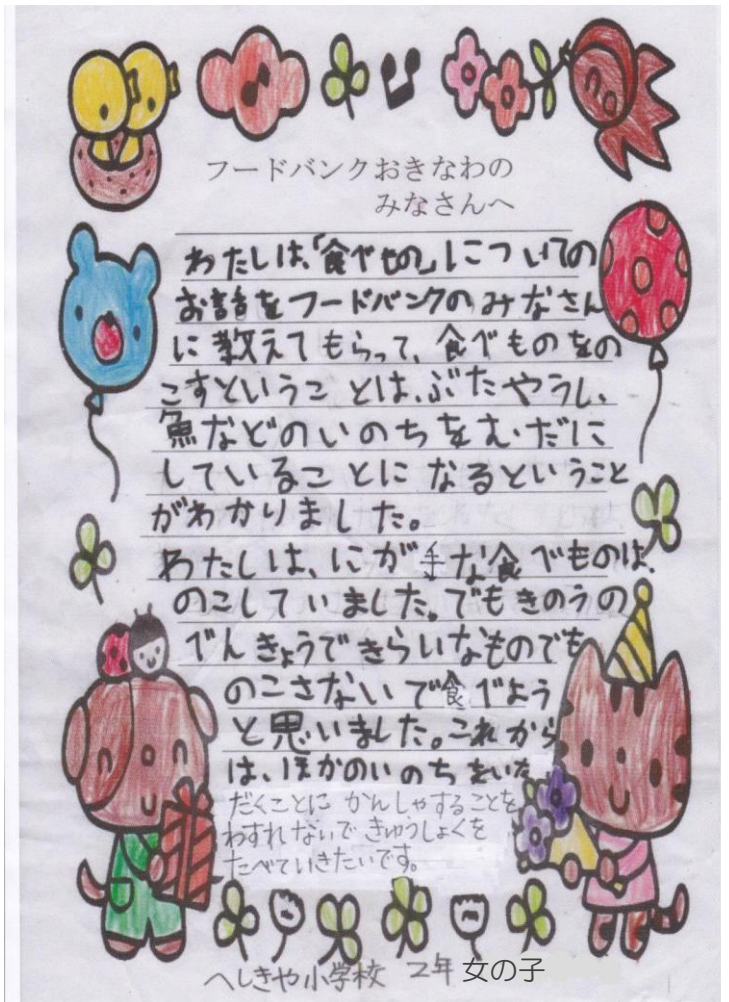 フードバンクおきなわの
みなさんへ
わたしは、「食べもの」についての
お話をフードバンクのみなさん
に教えてもらって、食べものをの
こすということは、ぶたやうし、
魚などのいのちをむだに
していることになるということ
がわかりました。
わたしは、にが手な食べものは、
のこしていました。でもきのうの
べんきょうできらいなものでも
のこさないで食べよう
と思いました。これから
は、ほかのいのちをいた
だくことにかんしゃすることを
わすれないできゅうしょくを
たべていきたいです。
へしきや小学校 2年 女の子